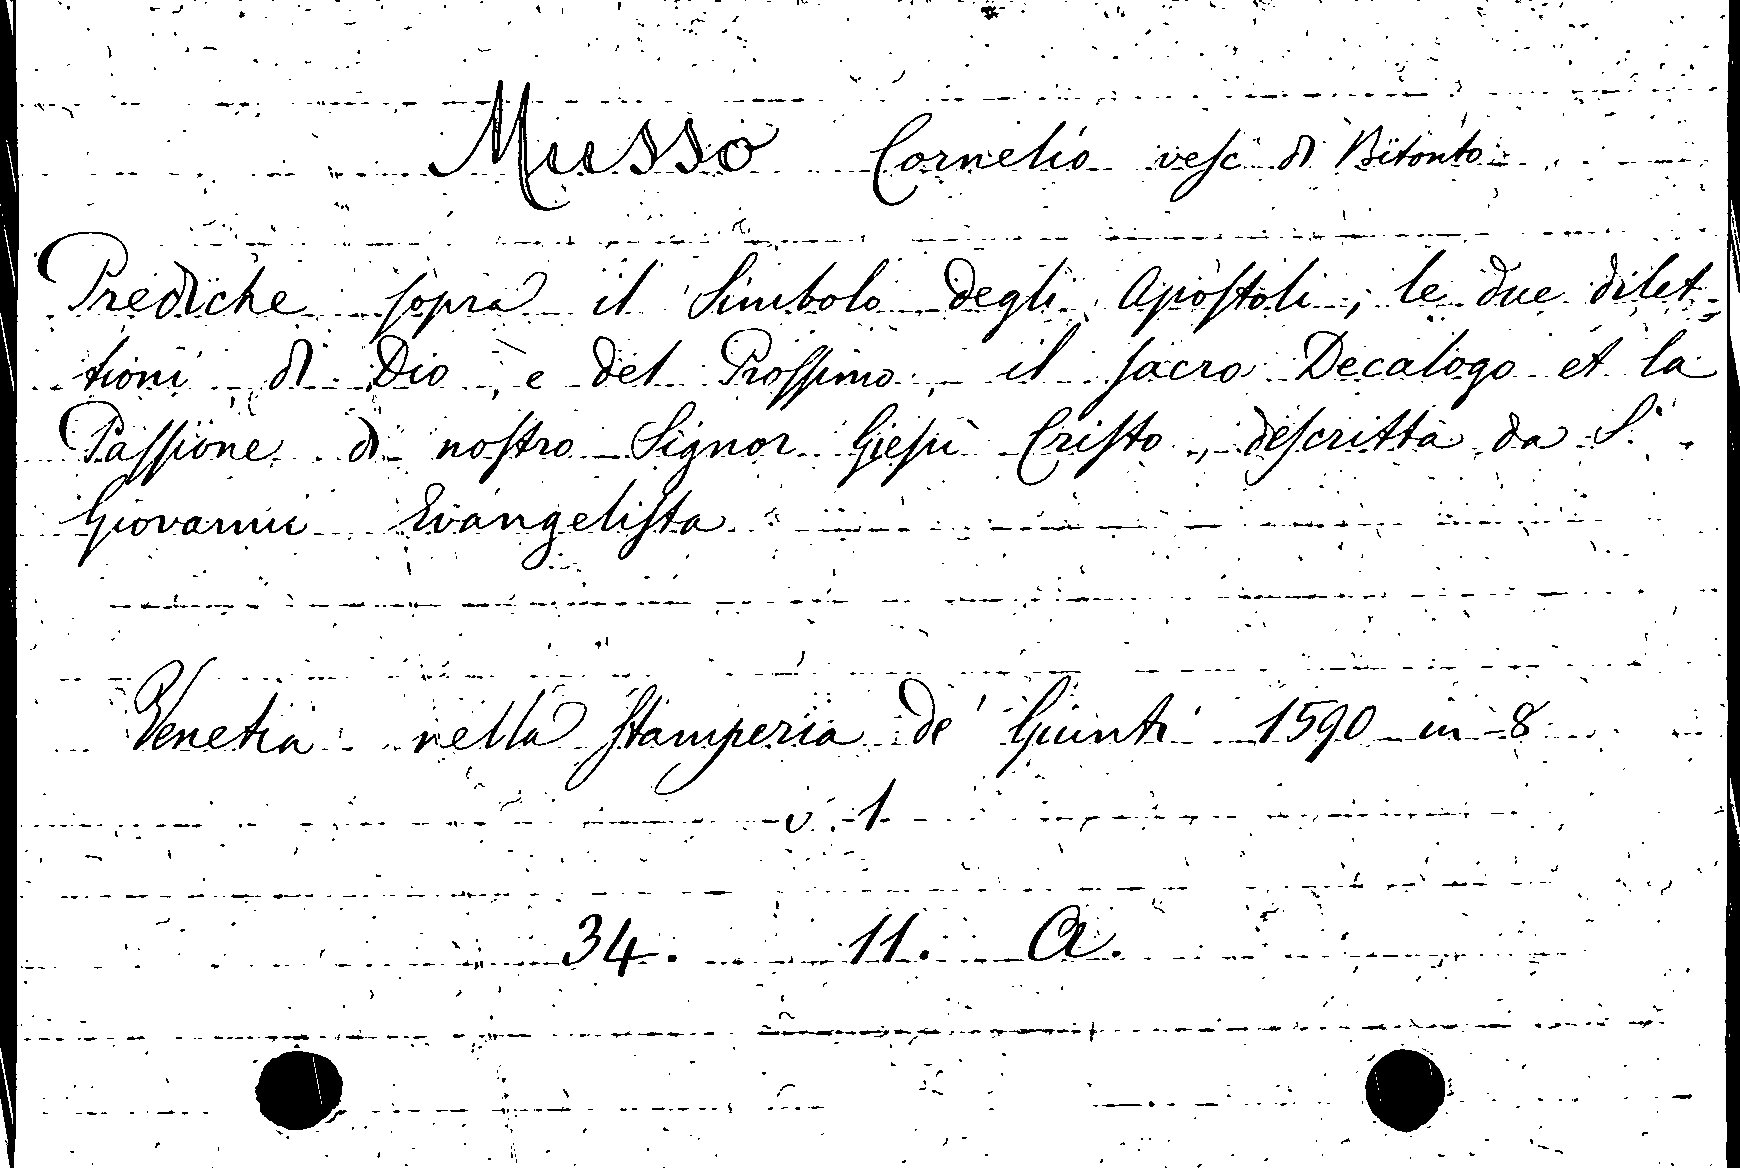 Musso Cornelio vesc di Bitonto
Prediche sopra il Simbolo degli Apostoli, le due dilet-
tioni di Dio, e del Prossimo, il sacro Decalogo et la
Passione di nostro Signor Giesù Cristo, descritta da S.
Giovanni Evangelista
Venetia nella Stamperia de' Giunti 1590 in 8
v. 1
34. 11. A.